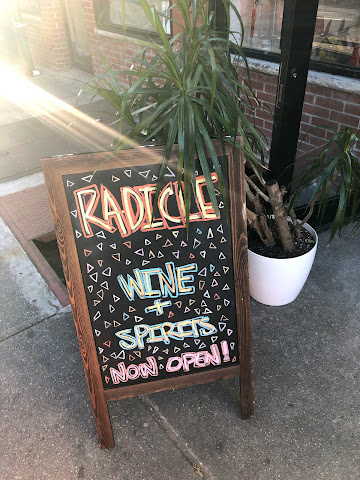 RADICLE
WINE
+
SPIRITS
NOW OPEN!